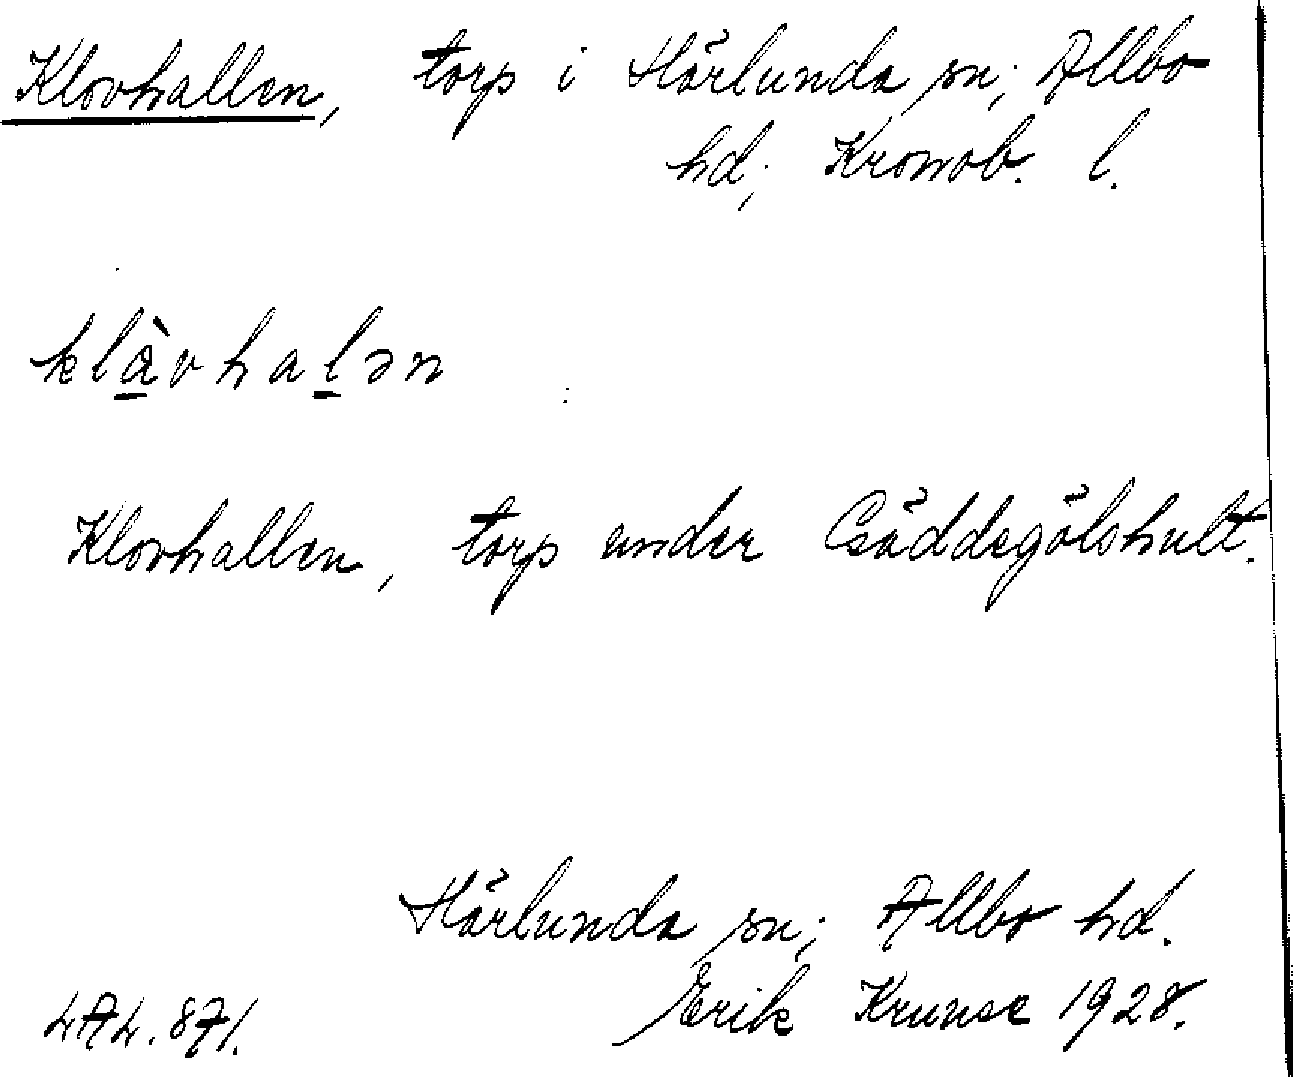 Klovhallen, torp i Härlunda sn; Allbo
hd; Kronob. l.
klàvhalən
Klovhallen, torp under Gäddegölshult.
Härlunda sn; Allbo hd.
Erik 1928.